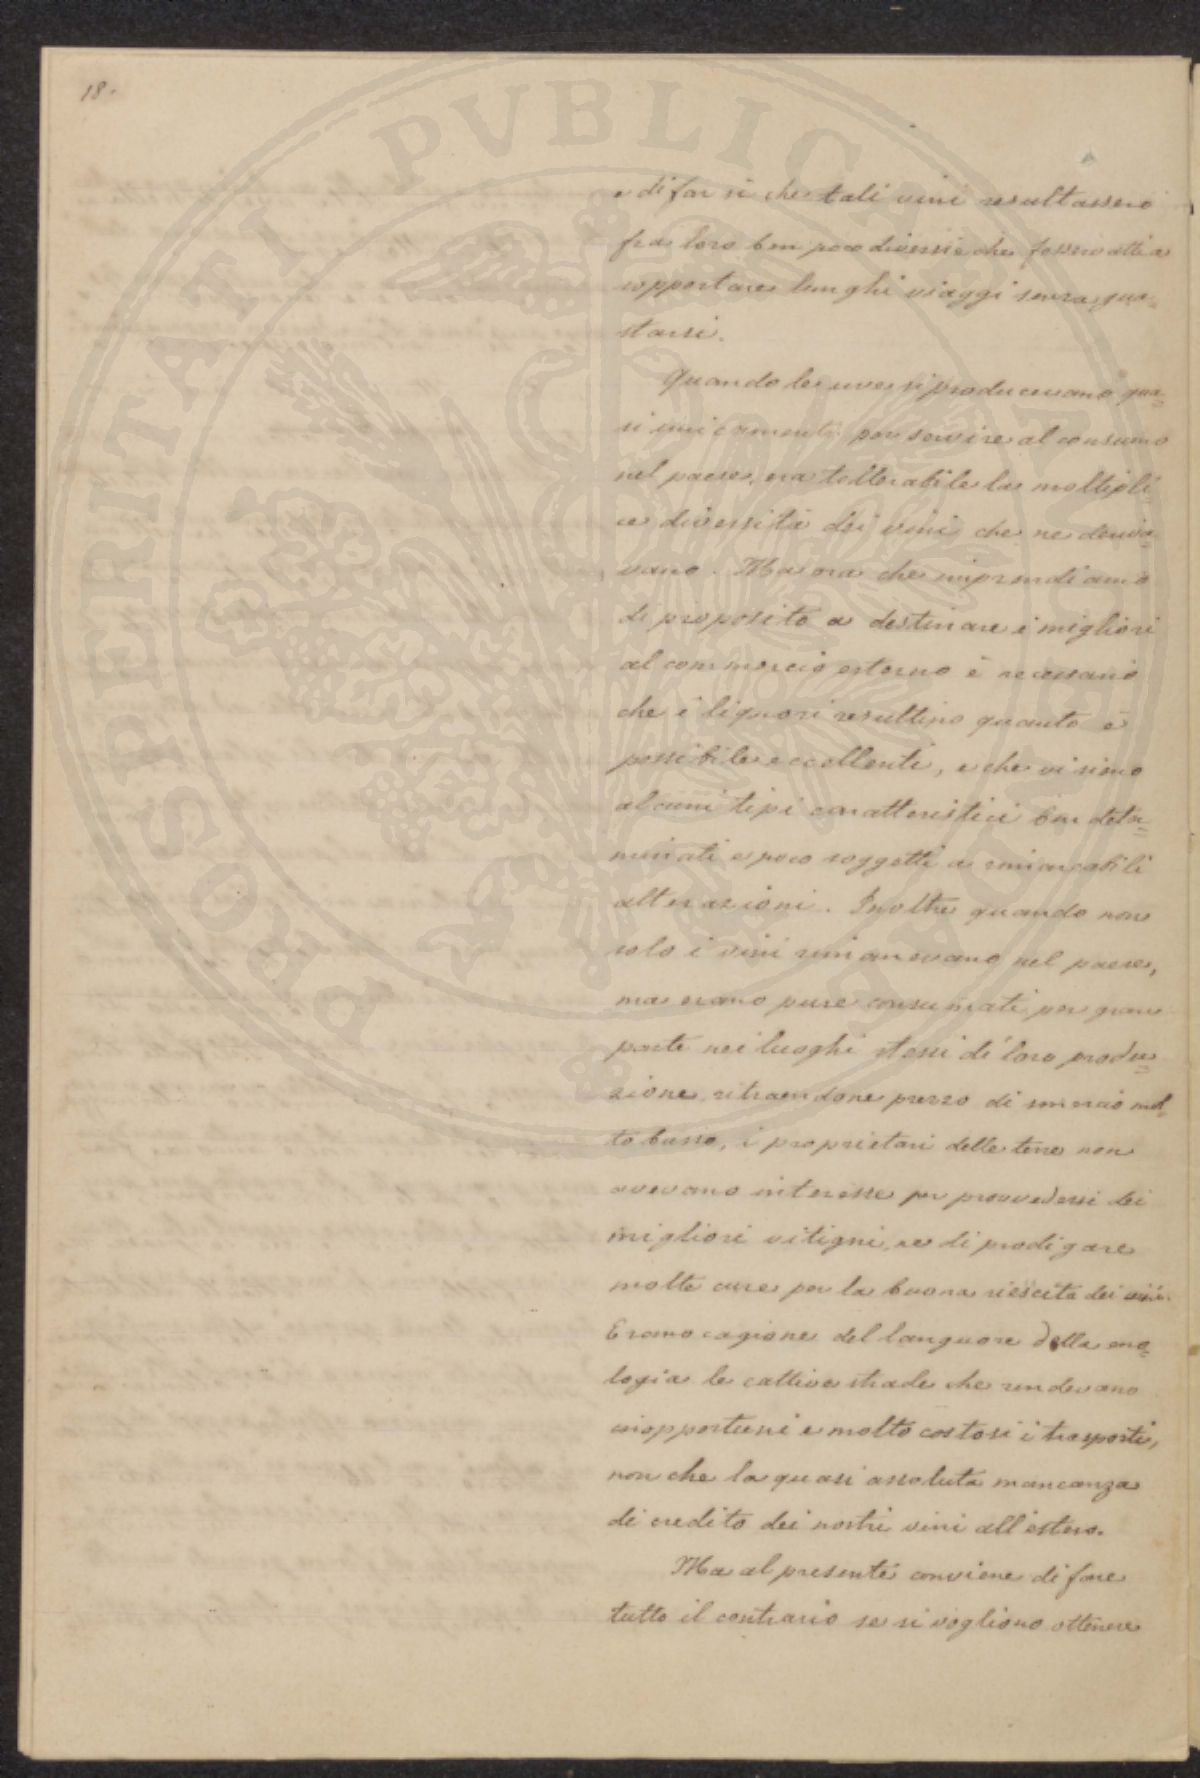 18.
e di far sì che tali vini resultassero
fra loro ben poco diversi e che fossero atti a
sopportare lunghi viaggi senza gua=
starsi.
Quando le uve si producevano qua=
si unicamente per servire al consumo
nel paese, era tollerabile la moltipli=
ce diversità dei vini che ne deriva=
vano. Ma ora che imprendiamo
di proposito a destinare i migliori
al commercio esterno è necessario
che i liquori resultino quanto è
possibile eccellenti, e che vi siano
alcuni tipi caratteristici ben deter=
minati e poco soggetti a rimarcabili
alterazioni. Inoltre quando non
solo i vini rimanevano nel paese,
ma erano pure consumati per gran
parte nei luoghi stessi di loro produ=
zione, ritraendone prezzo di smercio mol=
to basso, i proprietari delle terre non
avevano interesse per provvedersi dei
migliori vitigni, ne di prodigare
molte cure per la buona riescita dei vini.
Erano cagione del languore della eno=
logia le cattive strade che rendevano
inopportuni e molto costosi i trasporti,
non che la quasi assoluta mancanza
di credito dei nostri vini all'estero.
Ma al presente conviene di fare
tutto il contrario se si vogliono ottenere
PROSPERITATI PVBLICAE